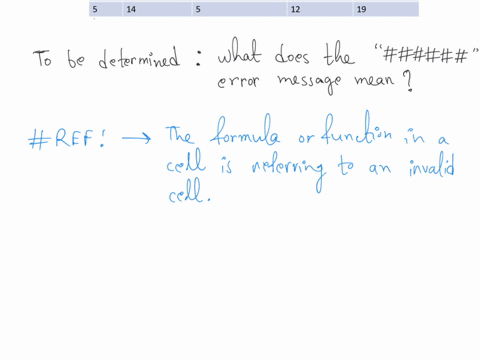 5 14 5 12 19
To be determined : what does the "######"
error message mean ?
#REF! → The formula or function in a
cell is referring to an invalid
cell.